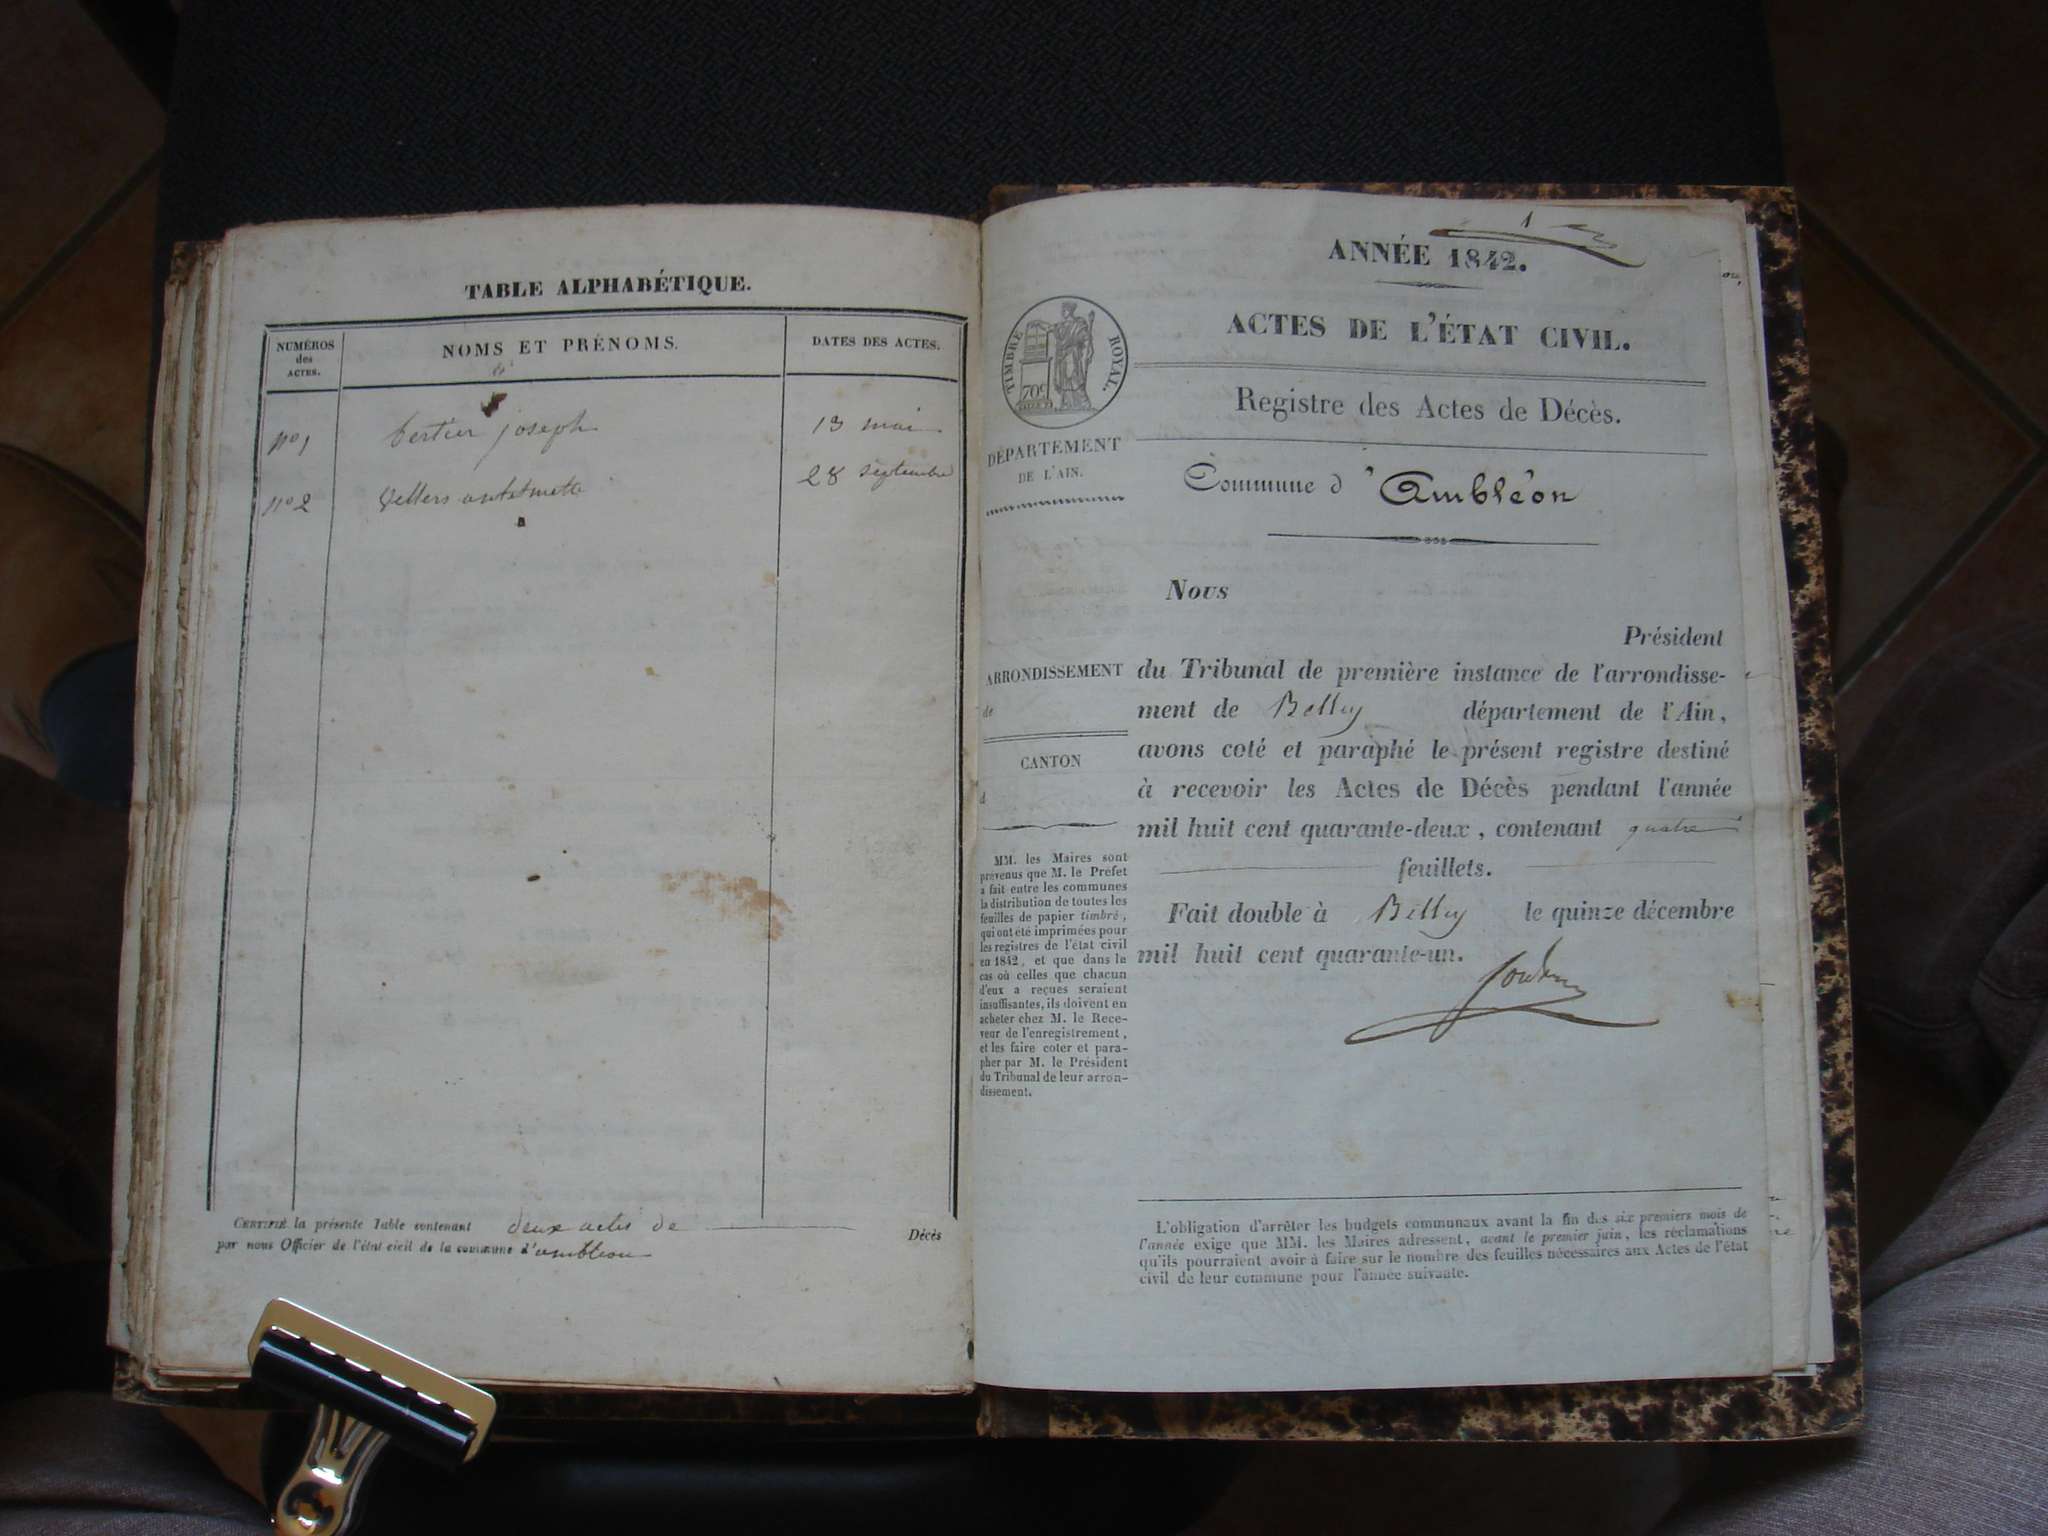 TABLE ALPHABÉTIQUE.
NUMÉROS
des
ACTES.
NOMS ET PRÉNOMS.
DATES DES ACTES.
nº1 bertier joseph 13 mai
nº2 28 septembre
CERTIFIÉ la présente Table contenant deux actes de Décès
par nous Officier de l'état civil de la commune d'ambléon
1
ANNÉE 1842.
ACTES DE L'ÉTAT CIVIL.
TIMBRE ROYAL.
70c
Registre des Actes de Décès.
DÉPARTEMENT
DE L'AIN.
Commune d'Ambléon
Nous
Président
ARRONDISSEMENT
de
CANTON
d
du Tribunal de première instance de l'arrondisse-
ment de Belley département de l'Ain,
avons coté et paraphé le présent registre destiné
à recevoir les Actes de Décès pendant l'année
mil huit cent quarante-deux, contenant quatre
feuillets.
Fait double à Belley le quinze décembre
mil huit cent quarante-un.
MM. les Maires sont
prévenus que M. le Préfet
a fait entre les communes
la distribution de toutes les
feuilles de papier timbré,
qui ont été imprimées pour
les registres de l'état civil
en 1842, et que dans le
cas où celles que chacun
d'eux a reçues seraient
insuffisantes, ils doivent en
acheter chez M. le Rece-
veur de l'enregistrement,
et les faire coter et para-
pher par M. le Président
du Tribunal de leur arron-
dissement.
L'obligation d'arrêter les budgets communaux avant la fin des six premiers mois de
l'année exige que MM. les Maires adressent, avant le premier juin, les réclamations
qu'ils pourraient avoir à faire sur le nombre des feuilles nécessaires aux Actes de l'état
civil de leur commune pour l'année suivante.